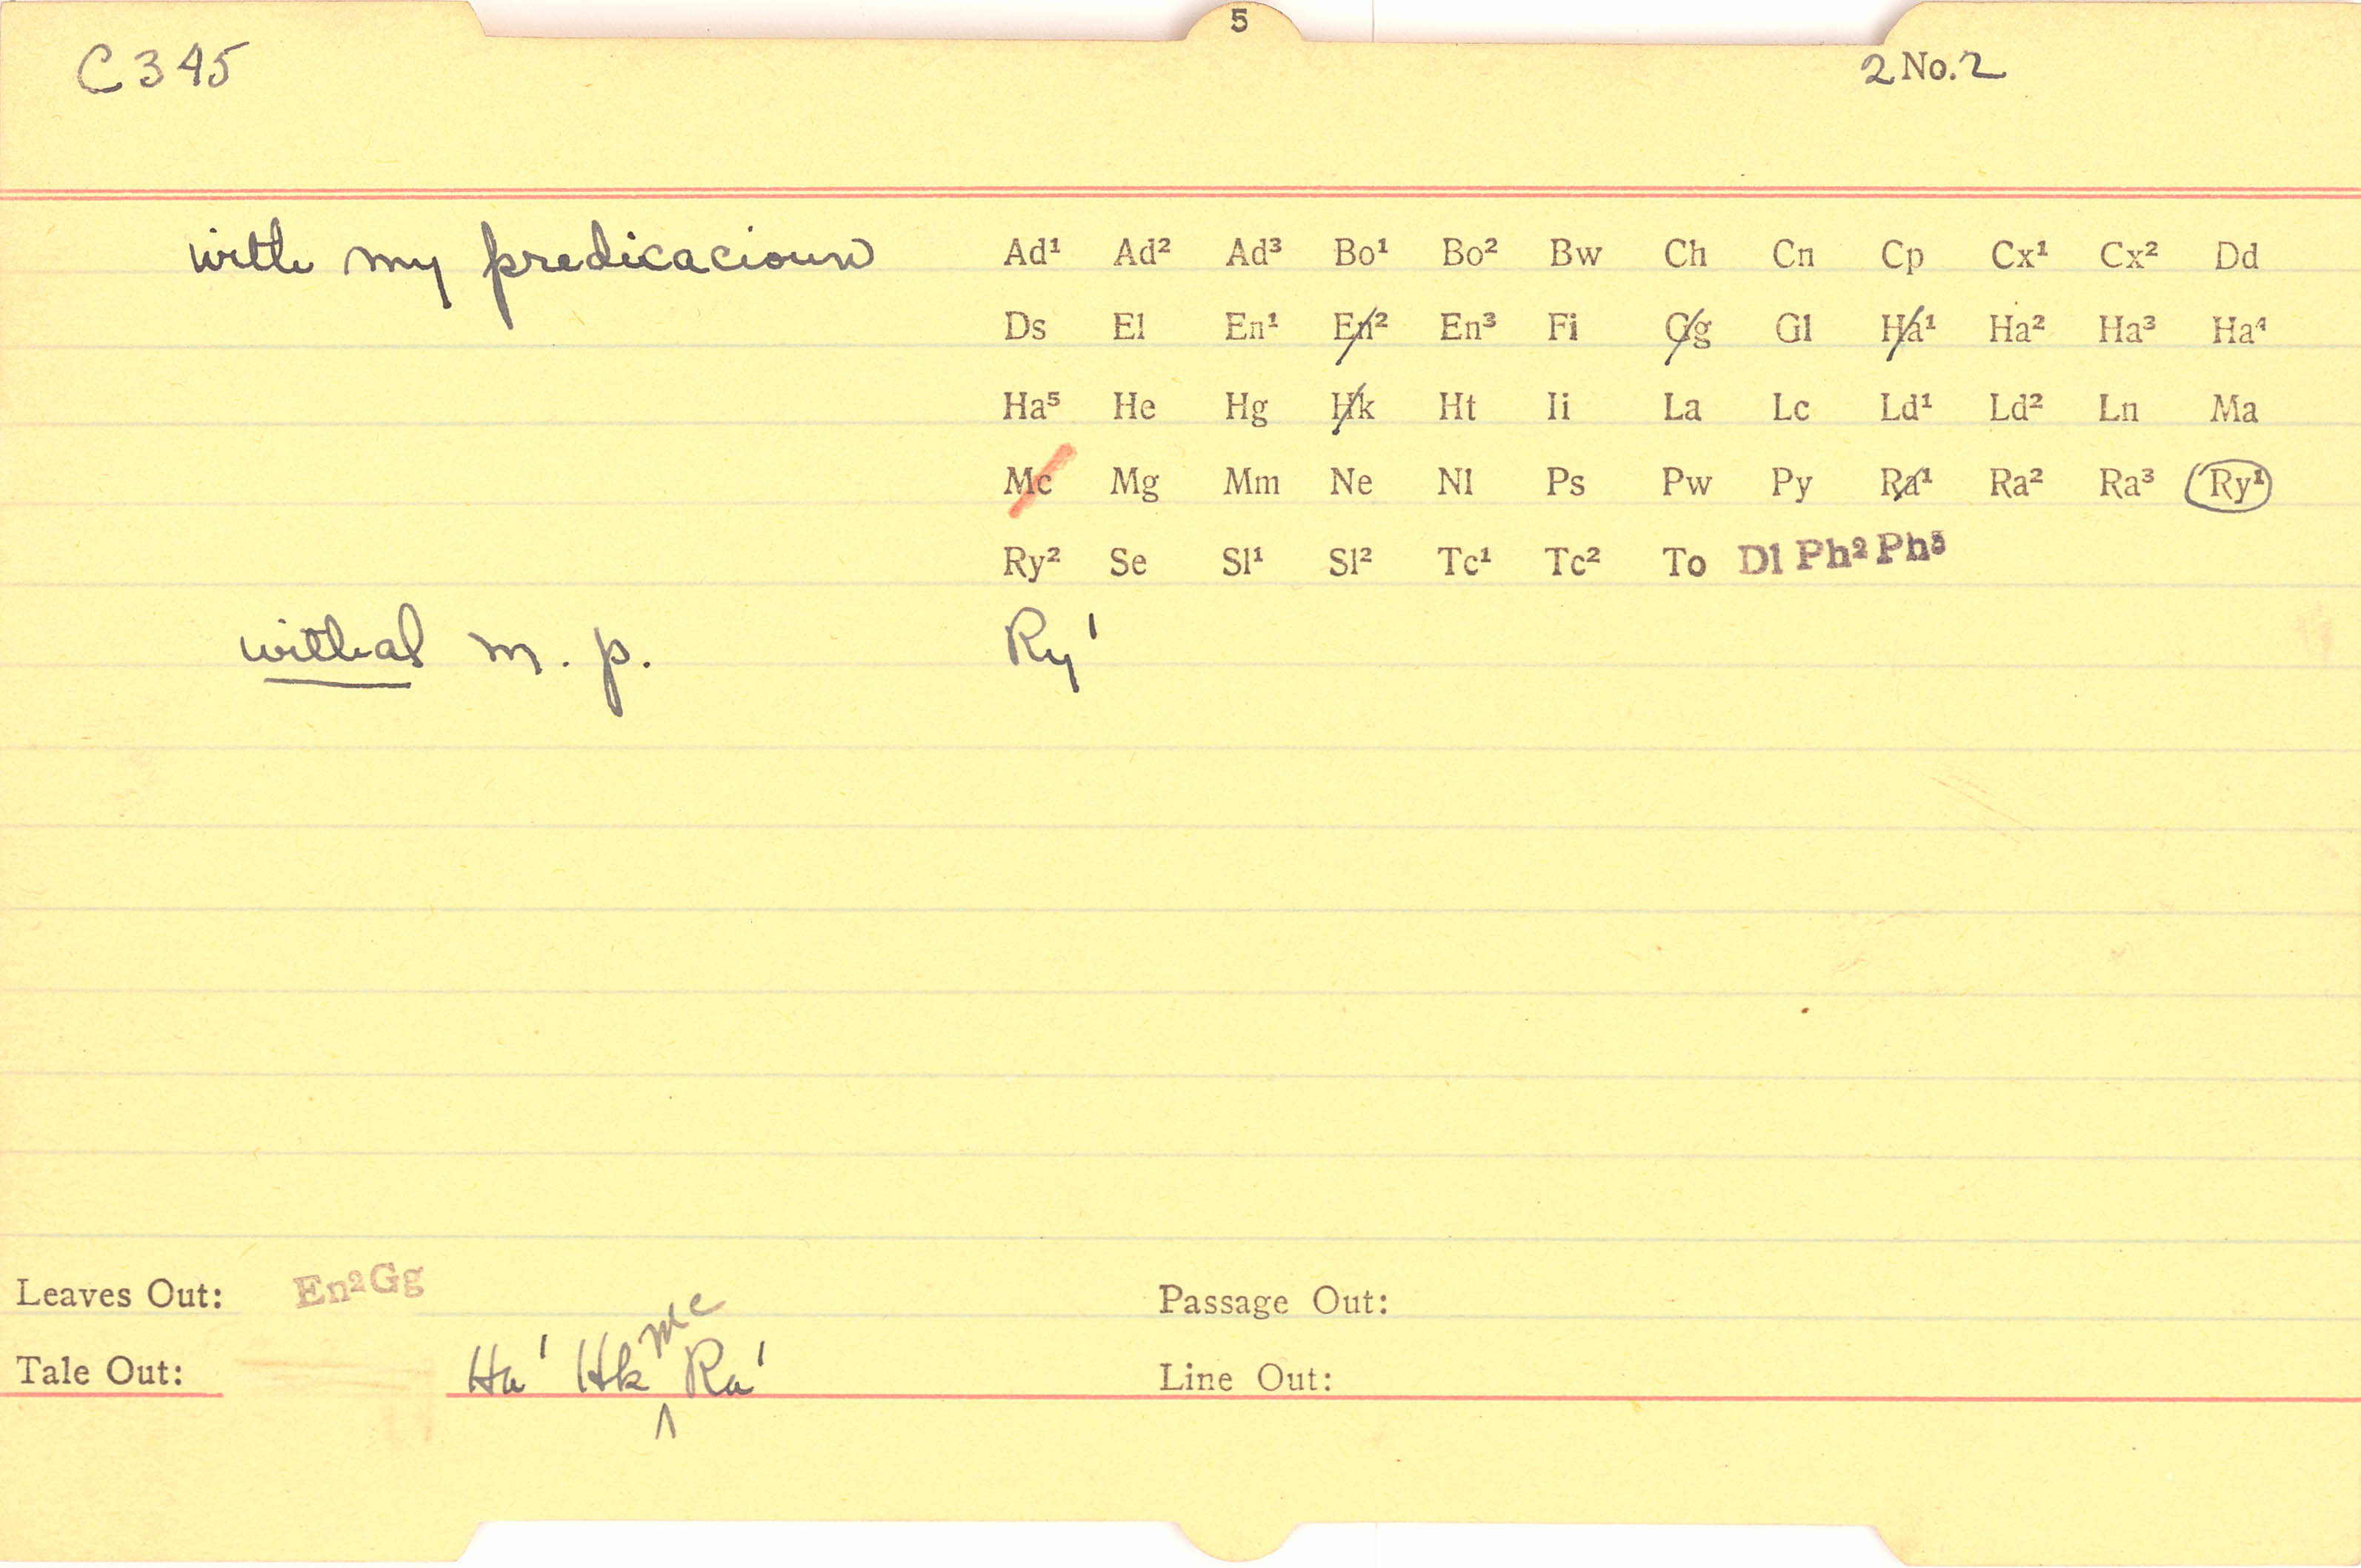 5
C 345 2 No. 2
with my predicacioun Ad¹ Ad² Ad³ Bo¹ Bo² Bw Ch Cn Cp Cx¹ Cx² Dd
Ds El En¹ En² En³ Fi Gg Gl Ha¹ Ha² Ha³ Ha⁴
Ha⁵ He Hg Hk Ht Ii La Lc Ld¹ Ld² Ln Ma
Mc Mg Mm Ne Nl Ps Pw Py Ra¹ Ra² Ra³ Ry¹
Ry² Se Sl¹ Sl² Tc¹ Tc² To Dl Ph² Ph³
withal m. p. Ry¹
Leaves Out: En² Gg Passage Out:
Tale Out: Ha¹ Hk Mc Ra¹ Line Out: